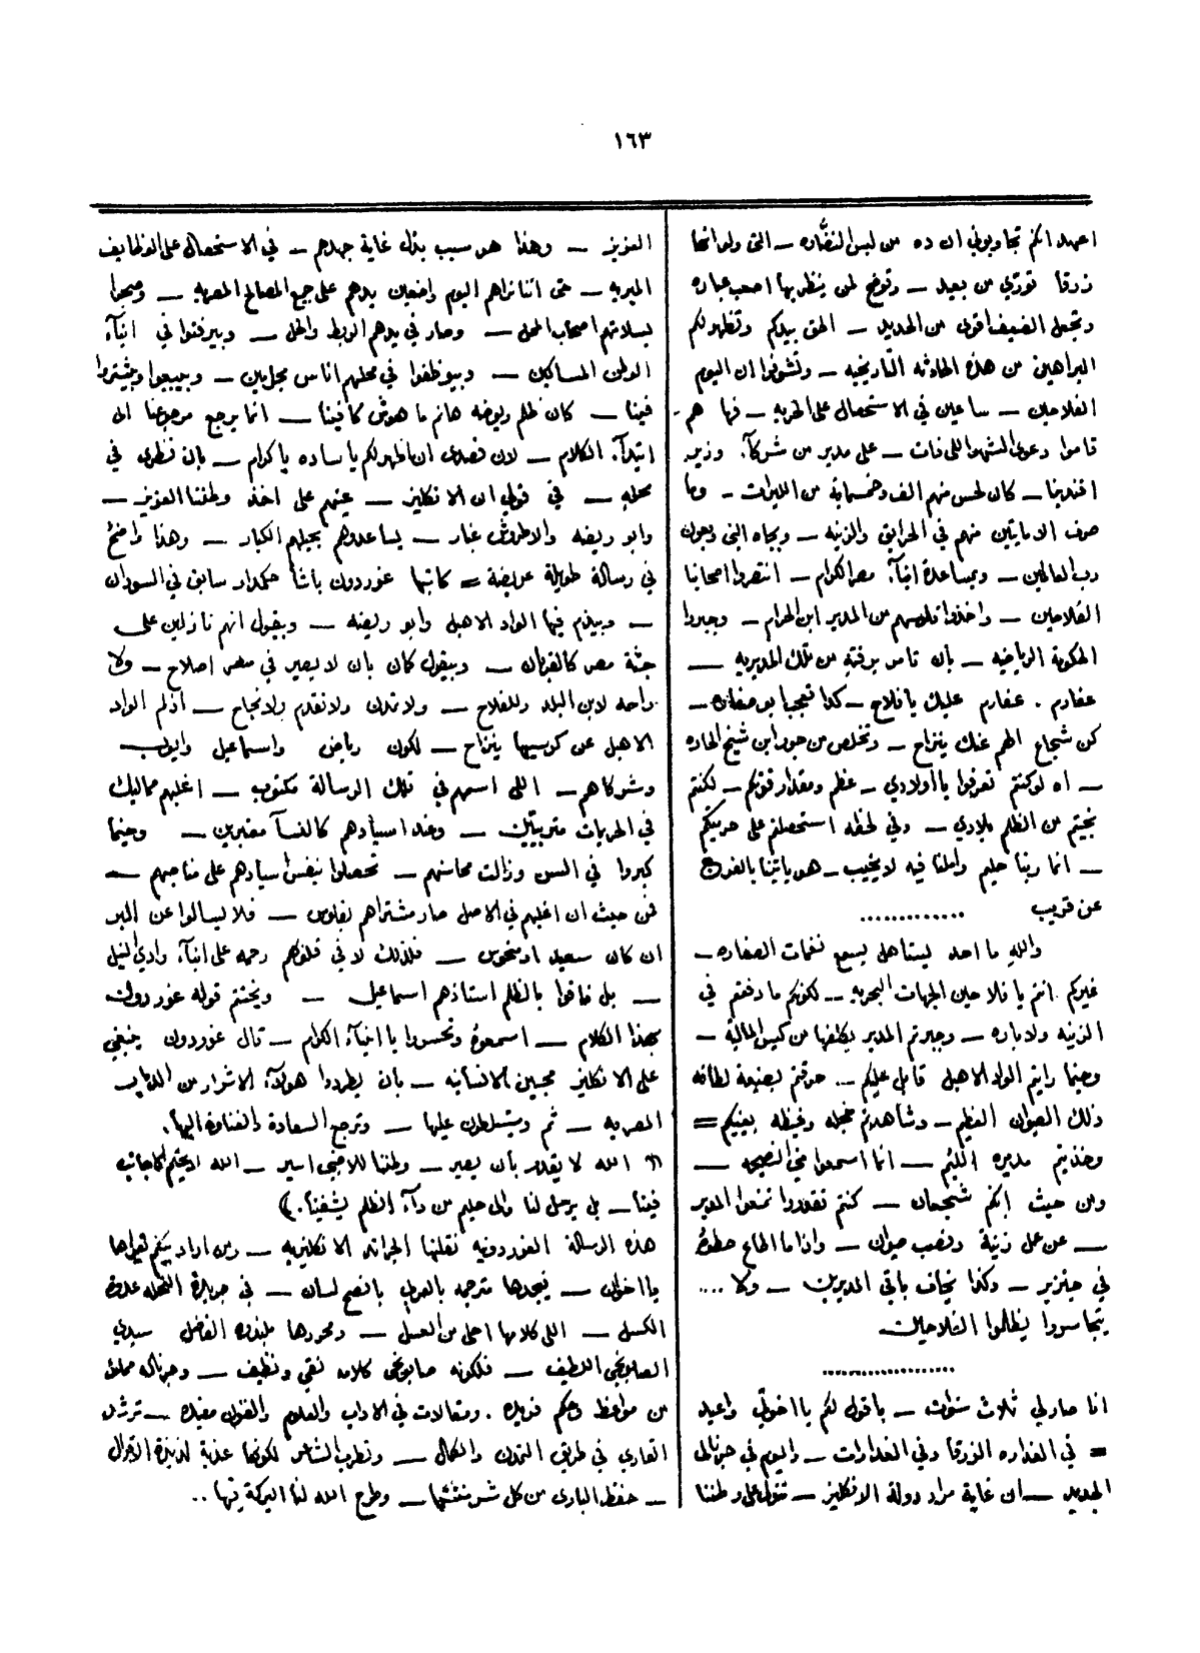 ١٦٣
اعهد انكم تجاوبوني ان ده من لبس النضّاره ـ التي ولو انها
زرقا تورّي من بعيد ـ وتوضح لمن ينظر بها اصعب عباره
وتجعل الضعيف اقوى من الحديد ـ الحق بيدكم وتظهر لكم
البراهين من هذه الحادثه التاريخيه ـ وتشوفوا ان اليوم
الفلاحين ـ ساعين في الاستحصال على الحريه ـ فها هم
قاموا دعوى الشهر اللي فات ـ على مدير من شركآء وزير
افندينا ـ كان لحس منهم الف وخمسماية من الليرات ـ وما
صرف الا مايتين منهم في الحرايق والزينه ـ وبجاه النبي وبعون
رب العالمين ـ وبمساعدة ابنآء مصر الكرام ـ انتصروا اصحابنا
الفلاحين ـ واخذوا فلوسهم من المدير ابن الحرام ـ وجبروا
الحكومة الرياضيه ـ بأن تامر برفته من تلك المديريه ـ
عفارم . عفارم عليك يا فلاح ـ كدا تعجب ابو صفاره ـ
كن شجاع الهم عنك ينزاح ـ وتخلص من جور ابن شيخ الحاره
ـ اه لو كنتم تعرفوا يا اولادي ـ عظم ومقدار قوتكم ـ لكنتم
نجيتم من الظلم بلادي ـ وفي لحظه استحصلتم على حريتكم
ـ انما ربنا حليم واملنا فيه لا يخيب ـ هو ياتينا بالفرج
عن قريب ............
والله ما احد يستاهل يسمع نغمات الصفاره ـ
غيركم انتم يا فلاحين الجهات البحريه ـ لكونكم ما دفعتم في
الزينه ولا باره ـ وجبرتم المدير يكلفها من كيس المالية ـ
وحينما رايتم الواد الاهبل قابل عليكم ـ حرقتم بصنعة لطافه
ذلك الصيوان العظيم ـ وشاهدتم خجله وغيظه بعينيكم =
وخذيتم مديره اللئيم ـ انما اسمعوا مني النصيحه ـ
ومن حيث انكم شجعان ـ كنتم تقدروا تمنعوا المدير
ـ عن عمل زينة ونصب صيوان ـ واذا ما الحاع حطوهُ
في جنزير ـ وكدا يخاف باقي المديرين ـ ولا ....
يتجاسروا يظلموا الفلاحين
..................
انا صار لي ثلاث سنوات ـ باقول لكم يا اخواني واعيد
= في النضاره الزرقا وفي النضارات ـ واليوم في جرنالي
الجديد ـ ان غاية مراد دولة الانكليز ـ تتولى على وطننا
العزيز ـ وهذا هو سبب بذل غاية جهدهم ـ في الاستحصال على الوظايف
الميريه ـ حتى اننا نراهم اليوم واضعين يدهم على جميع المصالح المصريه ـ وصبحوا
لسلامتهم اصحاب المحل ـ وصار في يدهم الربط والحل ـ وبيرفتوا في ابنآء
الوطن المساكين ـ وبيوظفوا في محلهم اناس مجلوبين ـ وبيبيعوا وبيشتروا
فينا ـ كان ظلم رياضه هانم ما هوش كافينا ـ انما يرجع مرجوعنا الى
ابتدآء الكلام ـ لان قصدي ان اظهر لكم يا ساده يا كرام ـ بان نظري في
محله ـ في قولي ان الانكليز ـ عينهم على اخذ وطننا العزيز ـ
وابو ريضه والاطروش غبار ـ يساعدوهم بجهلهم الكبار ـ وهذا واضحٌ
في رسالة طويلة عريضة = كاتبها غوردون باشا حكمدار سابق في السودان
ـ وبيذم فيها الواد الاهبل وابو ريضه ـ وبيقول انهم نازلين على
جثة مصر كالغربان ـ وبيقول كمان بأن لا يصير في مصر اصلاح ـ ولا
راحه لابن البلد وللفلاح ـ ولا تمدن ولا تقدم ولا نجاح ـ اذ لم الواد
الاهبل عن كرسيها ينزاح ـ لكون رياض واسماعيل وايوب
وشركاهم ـ اللي اسمهم في تلك الرسالة مكتوب ـ اغلبهم مماليك
في الحريمات متربيّين ـ وعند اسيادهم كالنسآ معتبرين ـ وحينما
كبروا في السن وزالت محاسنهم ـ تحصلوا بنفس اسيادهم على مناصبهم ـ
فمن حيث ان اغلبهم في الاصل صار مشتراهم بفلوس ـ فلا يسالوا عن البر
ان كان سعيد او منحوس ـ فلذلك لا في قلوبهم رحمه على ابنآء وادي النيل
ـ بل فاقوا بالظلم استاذهم اسماعيل ـ ويختتم قوله غوردون
بهذا الكلام ـ اسمعوهُ وتحسروا يا ابنآء الكرام ـ قال غوردون ينبغي
على الانكليز محبين الانسانيه ـ بأن يطردوا هولاء الاشرار من الديار
المصريه ـ ثم ويتسلطون عليها ـ وترجع السعادة والغناوة اليها.
(( الله لا يقدر بأن يصير ـ وطننا للاجنبي اسير ـ الله لا يحكم الاجانب
فينا ـ بل يرسل لنا والي حليم من دآء الظلم يشفينا.))
هذه الرسالة الغوردونيه نقلتها الجرائد الانكليزيه ـ ومن اراد بينكم يقراها
يا اخوان ـ فيجدها مترجمه بالعربي بافصح لسان ـ في جريدة النحله عدوة
الكسل ـ اللي كلامها احلى من العسل ـ ومحررها ملبنده الفاضل سيدي
الصابونجي اللطيف ـ فلكونه صابونجي كلامه نقي ونظيف ـ وجرناله مملوء
من مواعظ وحكم فريده . ومقالات في الاداب والعلوم والفنون مفيده ـ ترشد
القاري في طريق التمدن والكمال ـ وتطرب الشاعر لكونها عذبة لذيذة الاقوال
ـ حفظ الباري من كل شر منشئها ـ وطرح الله لنا البركة فيها ..